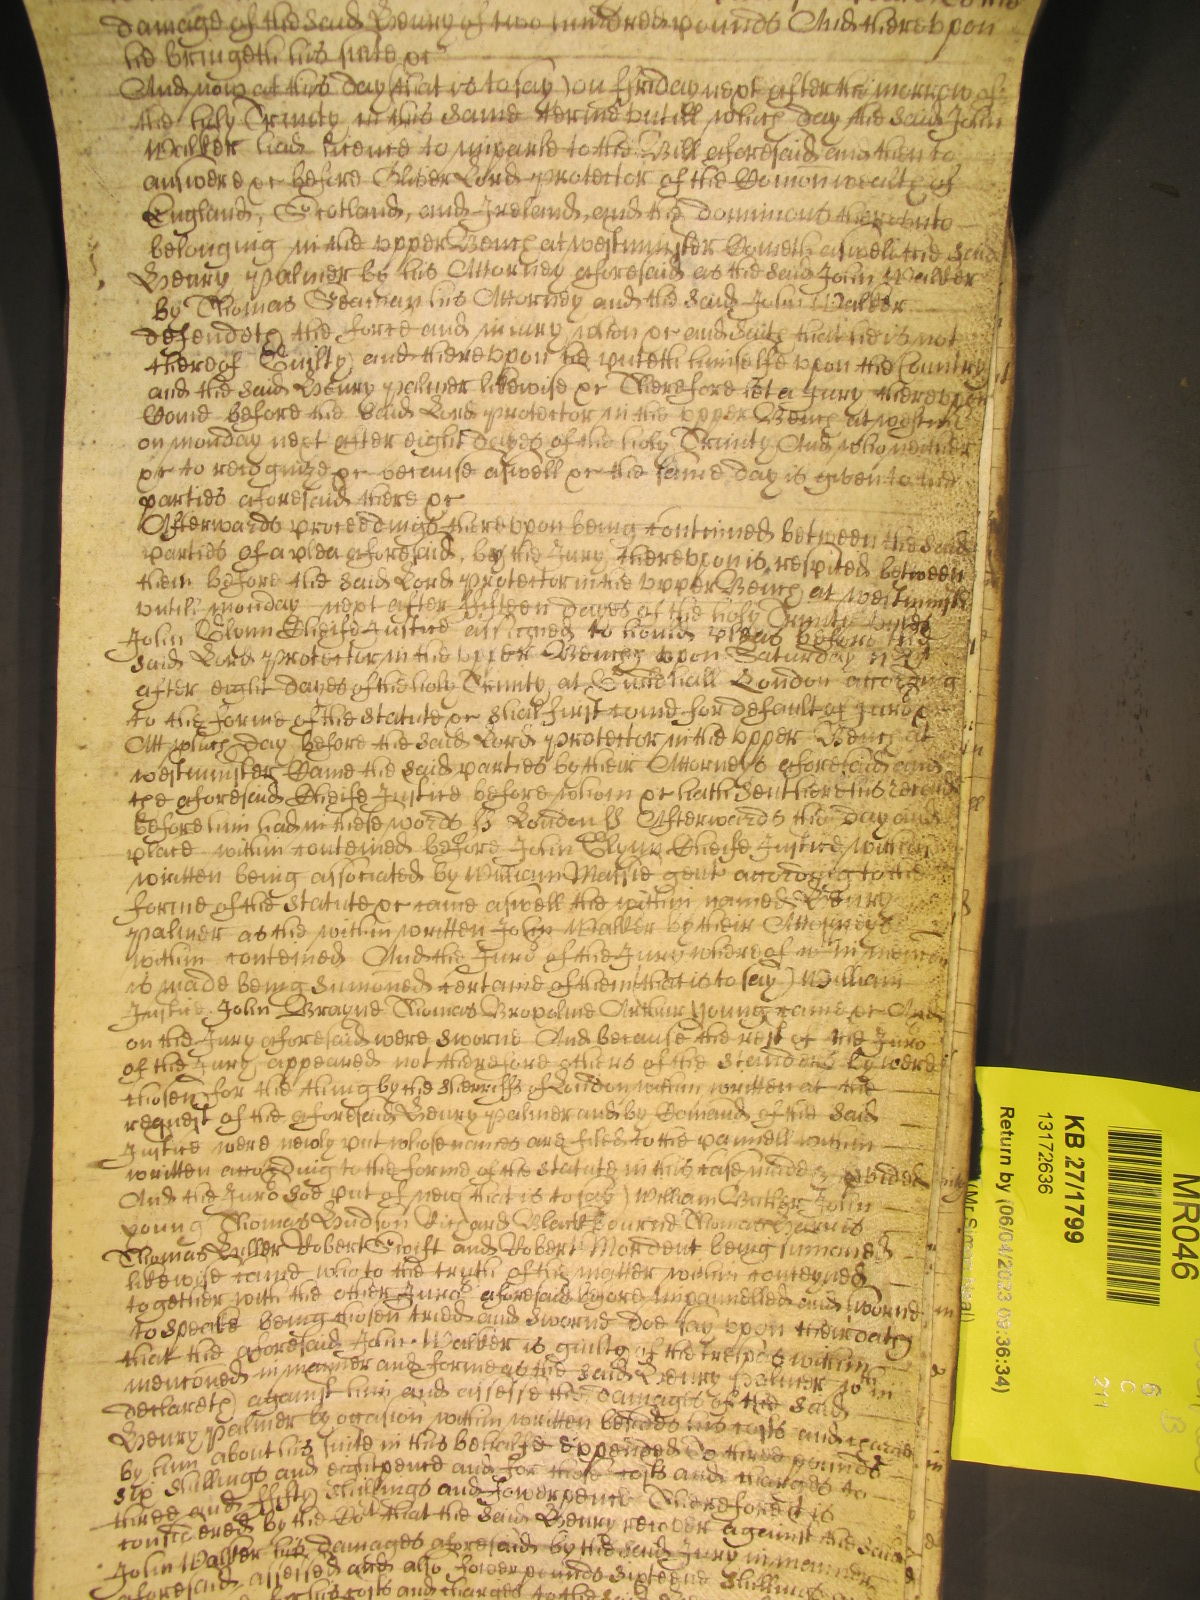 damage of the said Henry of two hundred pounds And thereupon
he bringeth his suite &c
And now at this day (that is to say) on friday next after the morrow of
the holy Trinity in this same terme untill which day the said John
Walker had licence to imparle to the Bill aforesaid and then to
answere &c before Oliver Lord Protector of the Comonwealth of
England, Scotland, and Ireland, and the dominions thereunto
belonging in the upper Bench at westminster Cometh aswell the said
Henry Palmer by his Attorney aforesaid as the said John Walker
by Thomas his Attorney and the said John Walker
defendeth the force and iniury when &c and saith that he is not
thereof Guilty and thereupon he putteth himselfe upon the Country
and the said Henry Palmer likewise &c Therefore let a Jury thereupon
Come before the said Lord Protector in the upper Bench at westmr
on monday next after eight dayes of the holy Trinity And who neither
&c to recognize &c because aswell &c the same day is given to the
parties aforesaid there &c
Afterwards proceedings thereupon being continued between the said
parties of a plea aforesaid, by the Jury thereupon is respited between
them before the said Lord Protector in the upper Bench at westminster
untill monday next after fifteen dayes of the holy Trinity unles
John Glynn Cheife Justice assigned to hould pleas before the
said Lord Protector in the upper Bench upon Saturday next
after eight dayes of the holy Trinity at Guildhall London according
to the forme of the statute &c shall first come for default of Juro
Att which day before the said Lord Protector in the upper Bench at
westminster Came the said parties by their Attorneys aforesaid and
the aforesaid Cheife Justice before whom &c hath sent here his record
before him had in these words ss London ss Afterwards the day and
place within conteined before John Glynn Cheife Justice within
written being associated by William Massie gent according to the
forme of the statute &c came aswell the within named Henry
Palmer as the within written John Walker by their Attorneys
within conteined And the Juro of the Jury whereof within mencon
is made being sumoned certaine of them (that is to say) William
Justice John Brayne Thomas Arthur Young came &c And
on the Jury aforesaid were sworne And because the rest of the Juro
of the Jury appeared not therefore others of the standers by were
chosen for the thing by the Sherriffs of London within written at the
request of the aforesaid Henry Palmer and by Comand of the said
Justice were newly put whose names are filed to the pannell within
written according to the forme of the statute in this case made & provided
And the Juro soe put of new that is to say) William Butler John
young Thomas Hudson Richard Blackbourne Thomas Harris
Thomas Robert Swift and Robert Mordent being sumoned
likewise came who to the truth of the matter within conteyned
together with the other Juro aforesaid before impannelled and sworne
to speake being chosen tried and sworne doe say upon their oath
that the aforesaid John Walker is guilty of the trespas within
mentioned in manner and forme as the said Henry Palmer within
declareth against him and assesse the damages of the said
Henry Palmer by occasion within written besides his costs and charges
by him about his suite in this behalfe expended to three pounds
six shillings and eightpence and for those costs and charges to
three and fifty shillings and fowerpence Therefore it is
considered by the Cot that the said Henry recover against the said
John Walker his damages aforesaid by the said Jury in manner
aforesaid assessed and also fower pounds sixteene shillings
for his costs and charges to the said Henry
MR046
KB 27/1799
13172636
Return by (06/04/2023 09:36:34)